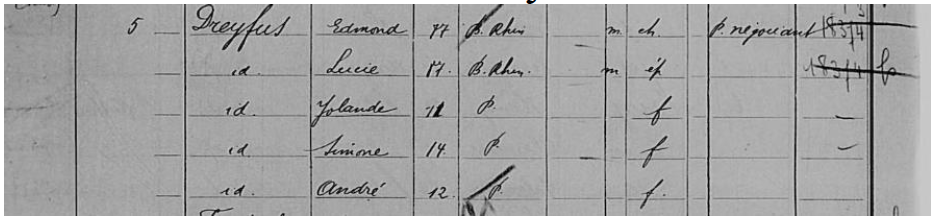 5 Dreyfus Edmond 77 B. Rhin m ch. P. négociant 183/4
id. Lucie 87. B. Rhin. m ép 183/4
id. Yolande 11 P. f —
id. Simone 14. P. f —
id. André 12. P. f.